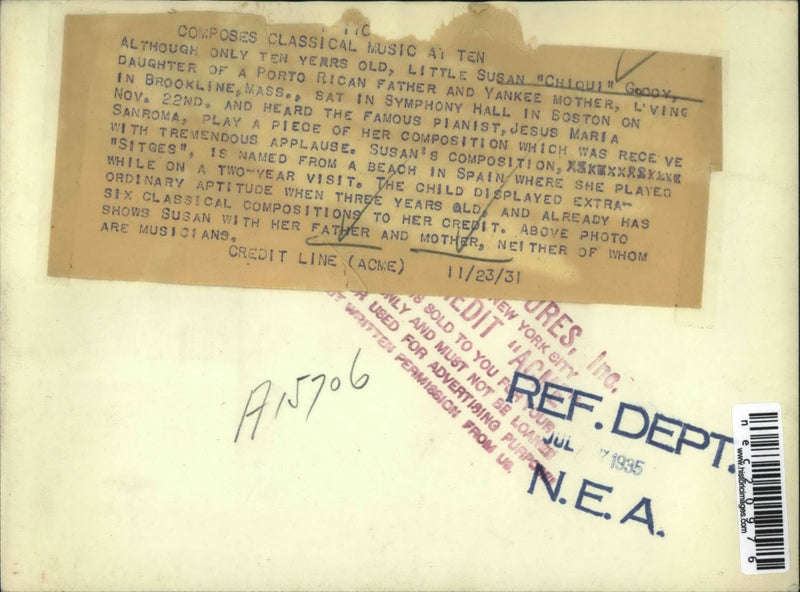 COMPOSES CLASSICAL MUSIC AT TEN
ALTHOUGH ONLY TEN YEARS OLD, LITTLE SUSAN "CHIQUI" GODOY,
DAUGHTER OF A PORTO RICAN FATHER AND YANKEE MOTHER, LIVING
IN BROOKLINE, MASS., SAT IN SYMPHONY HALL IN BOSTON ON
NOV. 22ND. AND HEARD THE FAMOUS PIANIST, JESUS MARIA
SANROMA, PLAY A PIECE OF HER COMPOSITION WHICH WAS RECEIVE
WITH TREMENDOUS APPLAUSE. SUSAN'S COMPOSITION,
"SITGES", IS NAMED FROM A BEACH IN SPAIN WHERE SHE PLAYED
WHILE ON A TWO-YEAR VISIT. THE CHILD DISPLAYED EXTRA-
ORDINARY APTITUDE WHEN THREE YEARS OLD, AND ALREADY HAS
SIX CLASSICAL COMPOSITIONS TO HER CREDIT. ABOVE PHOTO
SHOWS SUSAN WITH HER FATHER AND MOTHER, NEITHER OF WHOM
ARE MUSICIANS.
CREDIT LINE (ACME) 11/23/31
URES, Inc.
NEW YORK CITY
EDIT "ACME"
SOLD TO YOU FOR YOUR
ONLY AND MUST NOT BE LOANED
OR USED FOR ADVERTISING PURPOSES
WRITTEN PERMISSION FROM US.
A15706
REF. DEPT.
JUL 7 1935
N.E.A.
www.historicimages.com
nec20976